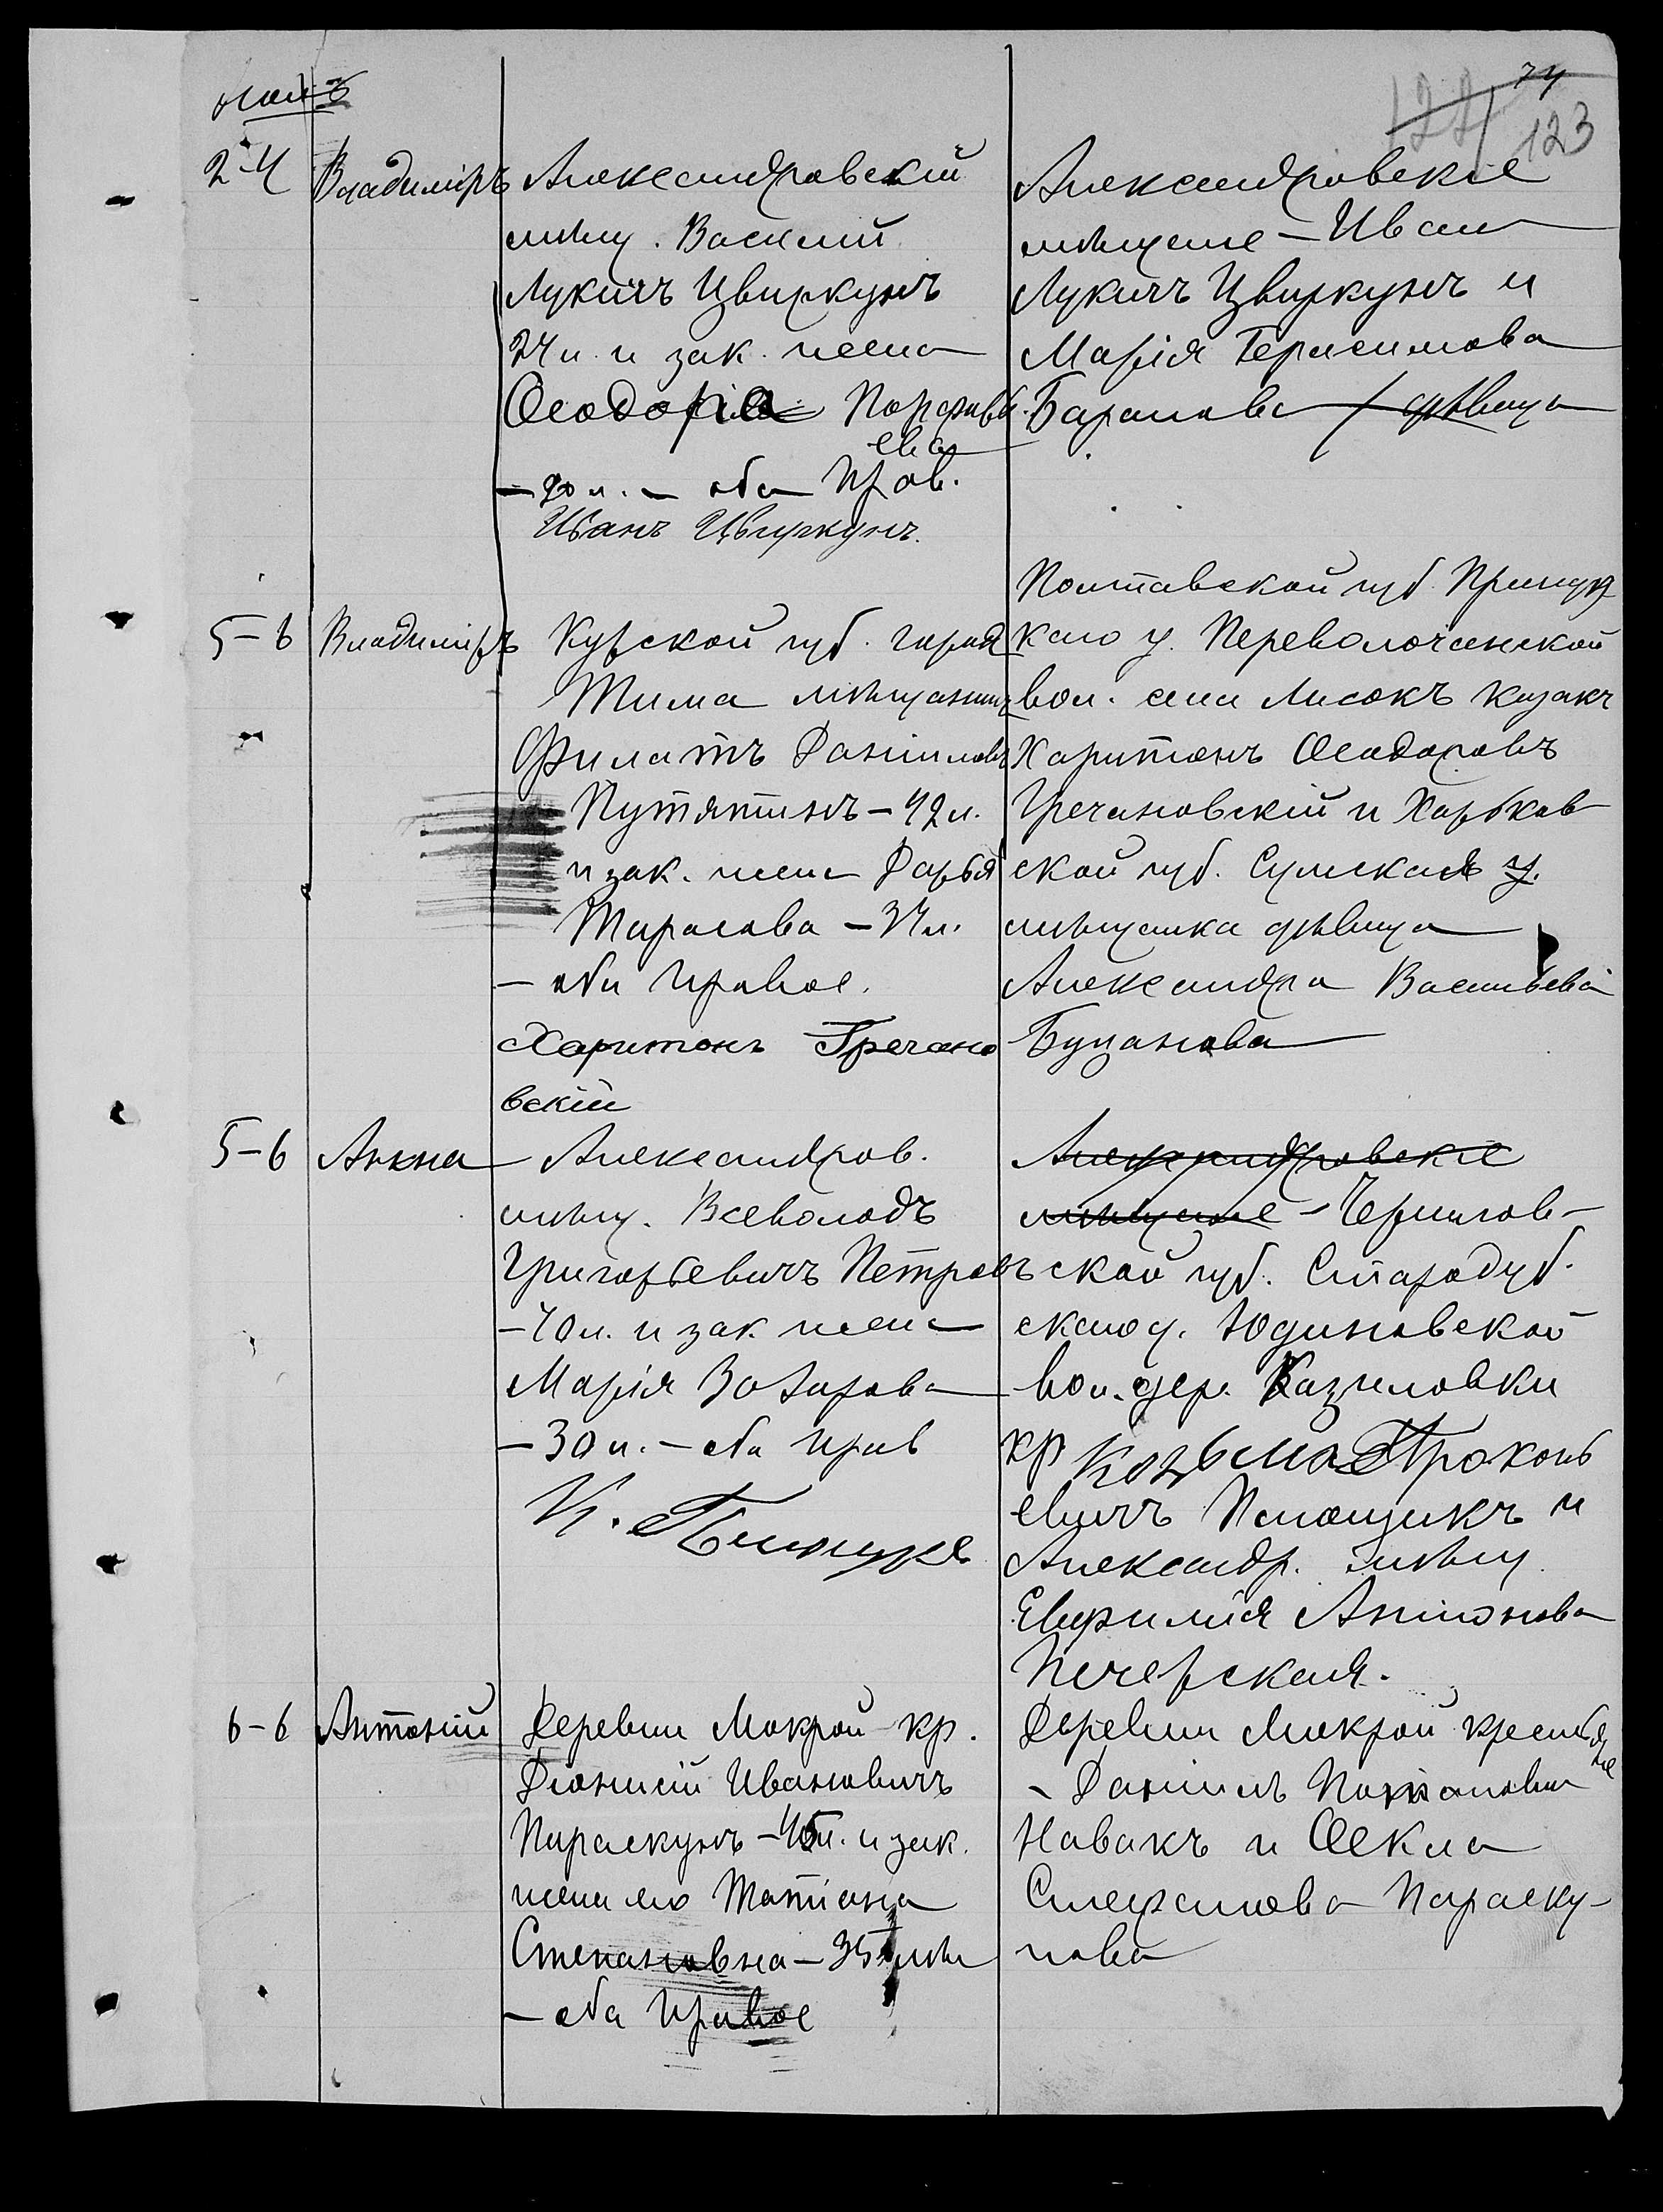 74
122
123
2-4 Владиміръ
Александровскій
мѣщ. Василій
Лукичъ Цвиркунъ
24 л. и зак. жена
Ѳеодора Порфирь
ева
— 20 л. — оба Прав.
Иванъ Цвиркунъ.
Александровскіе
мѣщане — Иванъ
Лукичъ Цвиркунъ и
Марія Герасимова
Баранова / дѣвица
5-6 Владиміръ
Курской губ. города
Тима мѣщанинъ
Филатъ Даніиловъ
Путятинъ — 42 л.
и зак. жена Дарья
Тарасова — 37 л.
— оба правос.
Харитонъ Гречано
вскій
Полтавской губ. Прилук
каго у. Переволоченской
вол. села Лисокъ казакъ
Харитонъ Ѳеодоровъ
Гречановскій и Харьков
ской губ. Сумская у.
мѣщанка дѣвица
Александра Васильева
Буданова
5-6 Анна
Александров.
мѣщ. Всеволодъ
Григорьевичъ Петровъ
— 40 л. и зак. жена
Марія Захарова
— 30 л. — оба прав
К.
Александровскіе
мѣщане — Чернигов-
ской губ. Стародуб.
скаго у. Юдиновской
вол. дер. Казиловки
кр Козьма Прокопь
евичъ и
Александр. мѣщ.
Евфимія Антонова
Печерская.
6-6 Антоній
Деревни Мокрой кр.
Діонисій Ивановичъ
Параскунъ — 45 л. и зак.
жена его Татіана
Степановна — 35 лѣтъ
— оба правос
Деревни Мокрой крестья
не
— Даніилъ
Новакъ и Ѳекла
Стефанова Параску-
нова